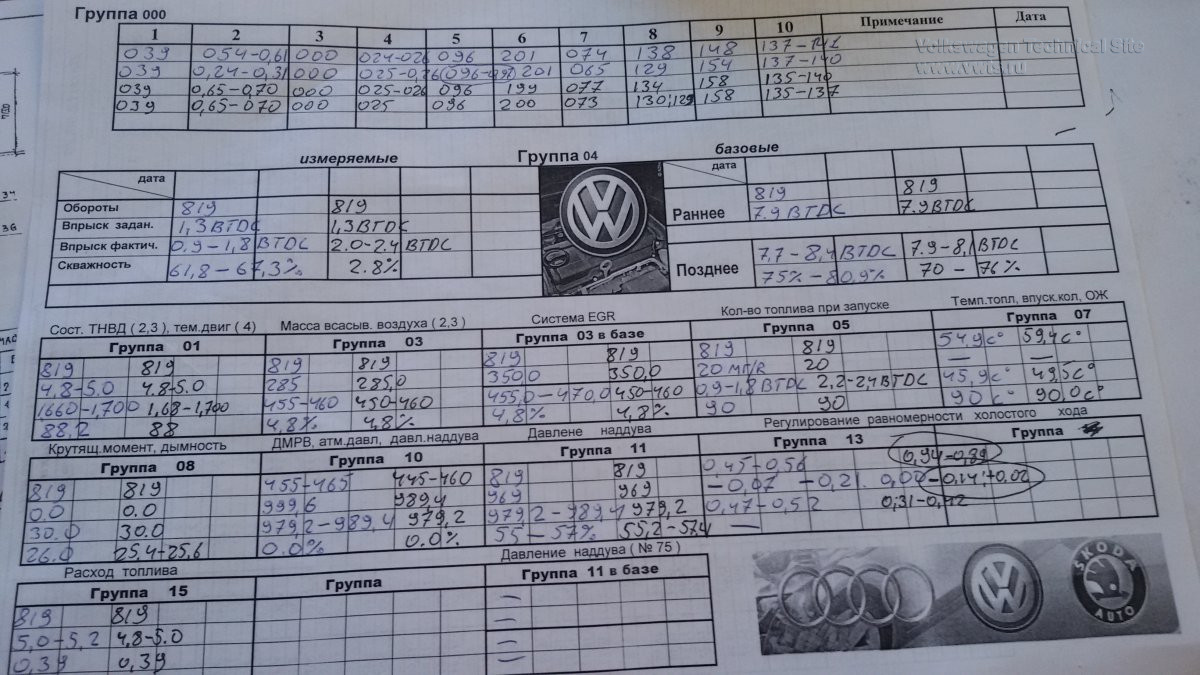 Группа 000
1 2 3 4 5 6 7 8 9 10 Примечание Дата
039 054-0,61 000 024-026 096 201 074 138 148 137-142
039 0,24-0,31 000 025-0,26 (096-098) 201 065 129 154 137-140
039 0,65-0,70 000 025-026 096 199 077 134 158 135-140
039 0,65-070 000 025 096 200 073 130;129 158 135-137
Volkswagen Technical Site
www.vwts.ru
измеряемые Группа 04 базовые
дата дата
Обороты 819 819
Впрыск задан. 1,3 BTDC 1,3 BTDC
Впрыск фактич. 0.9-1,8 BTDC 2.0-2.4 BTDC
Скважность 61,8-67,3% 2.8%
819 819
Раннее 7.9 BTDC 7.9 BTDC
7.7-8,4 BTDC 7.9-8,1 BTDC
Позднее 75%-80,9% 70-76%
Сост. ТНВД ( 2,3 ), тем.двиг ( 4)
Группа 01
819 819
4,8-5.0 4.8-5.0
1660-1,700 1,68-1,700
88,2 88
Масса всасыв. воздуха ( 2,3 )
Группа 03
819 819
285 285,0
455-460 450-460
4,8% 4,8%
Система EGR
Группа 03 в базе
819 819
350,0 350,0
455,0-470,0 450-460
4,8% 4,8%
Кол-во топлива при запуске
Группа 05
819 819
20 МГ/R 20
0,9-1,8 BTDC 2,2-2.4 BTDC
90 90
Темп.топл, впуск.кол, ОЖ
Группа 07
54,9c° 59,4c°
— —
45,9c° 49,5c°
90c° 90,0c°
Крутящ.момент, дымность
Группа 08
819 819
0.0 0.0
30.0 30.0
26.0 25,4-25,6
ДМРВ, атм.давл, давл.наддува
Группа 10
455-465 445-460
999,6 989,4
979,2-989,4 979,2
0.0% 0.0%
Давлене наддува
Группа 11
819 819
969 969
979,2-989,4 979,2
55-57% 55,2-57,4
Регулирование равномерности холостого хода
Группа 13 Группа
0,45-0,56 0,94-0,89
-0,07 -0,21. 0,04-0,14;+0,02
0,47-0,52 0,31-0,42
—
Расход топлива
Группа 15
819 819
5,0-5,2 4,8-5.0
0,39 0,39
Группа
Давление наддува ( № 75 )
Группа 11 в базе
—
—
—
—
SKODA
AUTO